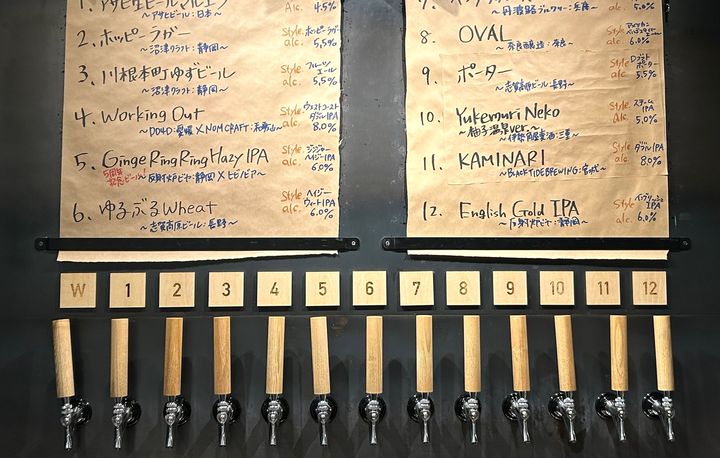 1. アサヒ生ビールマルエフ
〜アサヒビール:日本〜
alc. 4.5%
2. ホッピーラガー
〜沼津クラフト:静岡〜
Style. ホッピーラガー
alc. 5.5%
3. 川根本町ゆずビール
〜沼津クラフト:静岡〜
Style. フルーツエール
alc. 5.5%
4. Working Out
〜DD4D:愛媛×NOMCRAFT:和歌山〜
Style. ウエストコーストダブルIPA
alc. 8.0%
5. Ginge Ring Ring Hazy IPA
5周年記念ビール
〜反射炉ビヤ:静岡×ヒビノビア〜
Style. ジンジャーヘイジーIPA
alc. 6.0%
6. ゆるぶるWheat
〜志賀高原ビール:長野〜
Style. ヘイジーウィートIPA
alc. 6.0%
〜丹波路ブルワリー:兵庫〜
alc. 5.0%
8. OVAL
〜奈良醸造:奈良〜
Style.
alc. 6.0%
9. ポーター
〜志賀高原ビール:長野〜
Style. ロブストポーター
alc. 5.5%
10. Yukemuri Neko
〜柚子温泉ver.〜
〜伊勢角屋麦酒:三重〜
Style. スチームIPA
alc. 5.0%
11. KAMINARI
〜BLACK TIDE BREWING:宮城〜
Style. ダブルIPA
alc. 8.0%
12. English Gold IPA
〜反射炉ビヤ:静岡〜
Style. イングリッシュIPA
alc. 6.0%
W 1 2 3 4 5 6 7 8 9 10 11 12